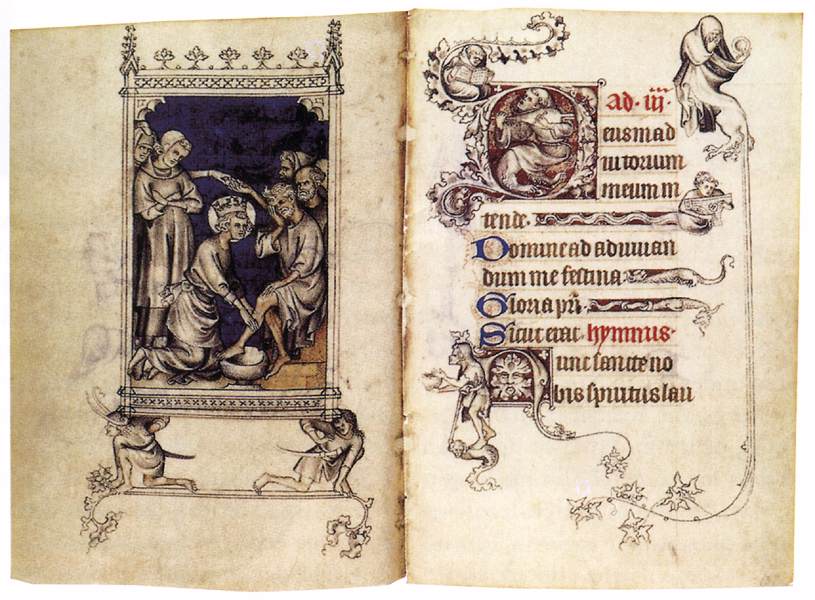 Ad. iij.
Deus in ad
iutorium
meum in
tende.
Domine ad adiuuan
dum me festina
Gloria pri
Sicut erat. hymnus.
Nunc sancte no
bis spiritus lau